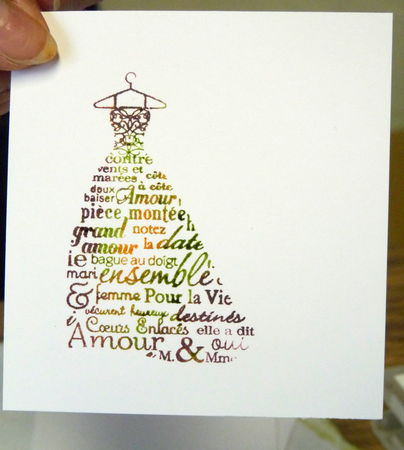 contre
vents et
marées côte
à côte
doux
baiser Amour
pièce montée
grand notez
amour la date
bague au doigt
mari ensemble
& femme Pour la Vie
vécurent heureux destinés
Cœurs Enlacés elle a dit
Amour oui
M. & Mme